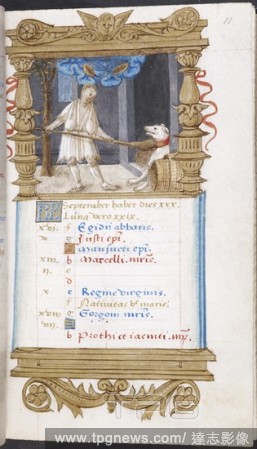 11
September habet dies xxx.
Luna vero xxix.
xvi. f Egidii abbatis.
v g Justi epi.
Mansueti epi.
xiii b Marcelli. mris.
ii c
d
x e Regine virginis.
f Nativitas b. maris.
xviii g Gorgoni mris.
vii
b Prothi et iacincti. mr.
www.tpgnews.com/ 達志影像